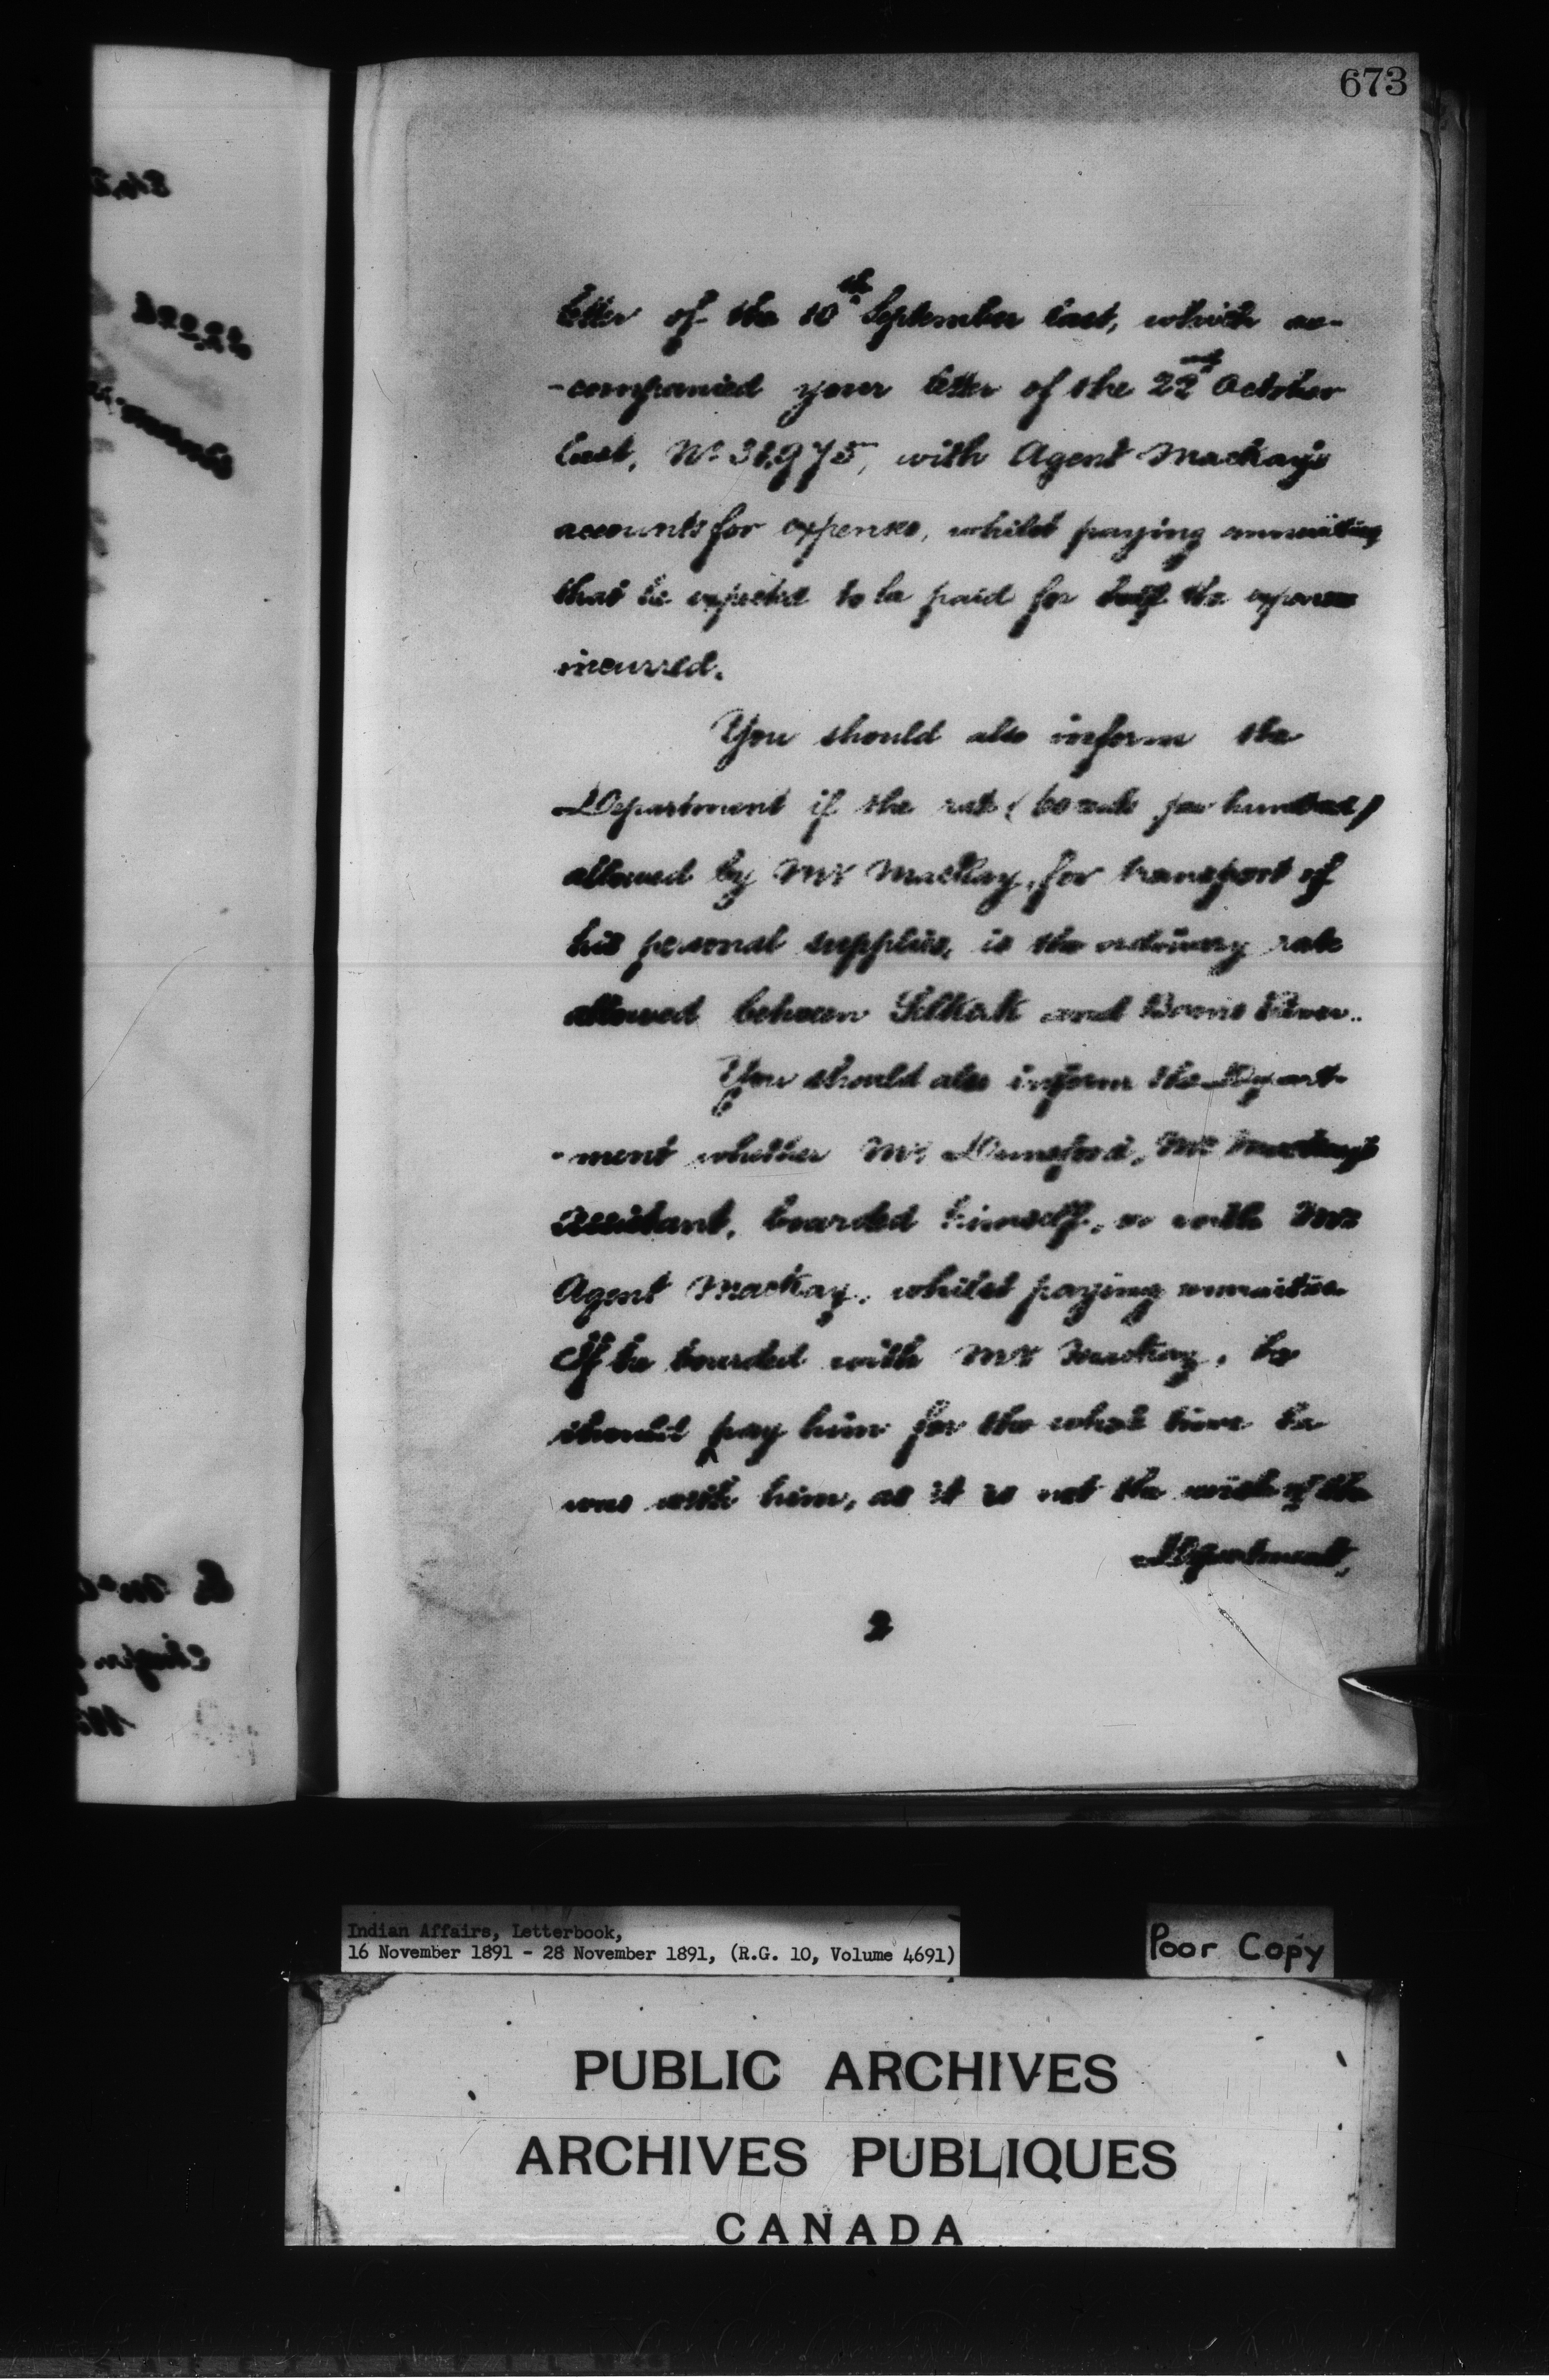 673
letter of the 10th September last, which ac-
-companied your letter of the 22nd October
last, No 31,975, with Agent Mackay's
accounts for expenses, whilst paying annuities
that he expected to be paid for half the expenses
incurred.
You should also inform the
Department if the rate (60 cents per hundred)
allowed by Mr Mackay, for transport of
his personal supplies, is the ordinary rate
allowed between Selkirk and Berens River.
You should also inform the Depart-
-ment whether Mr. Mr Mackay's
Assistant, boarded himself, or with
Agent Mackay, whilst paying annuities.
If he boarded with Mr Mackay, he
should pay him for the whole time he
was with him, as it is not the wish of the
Department,
2
Indian Affairs, Letterbook,
16 November 1891 - 28 November 1891, (R.G. 10, Volume 4691)
Poor Copy
PUBLIC ARCHIVES
ARCHIVES PUBLIQUES
CANADA